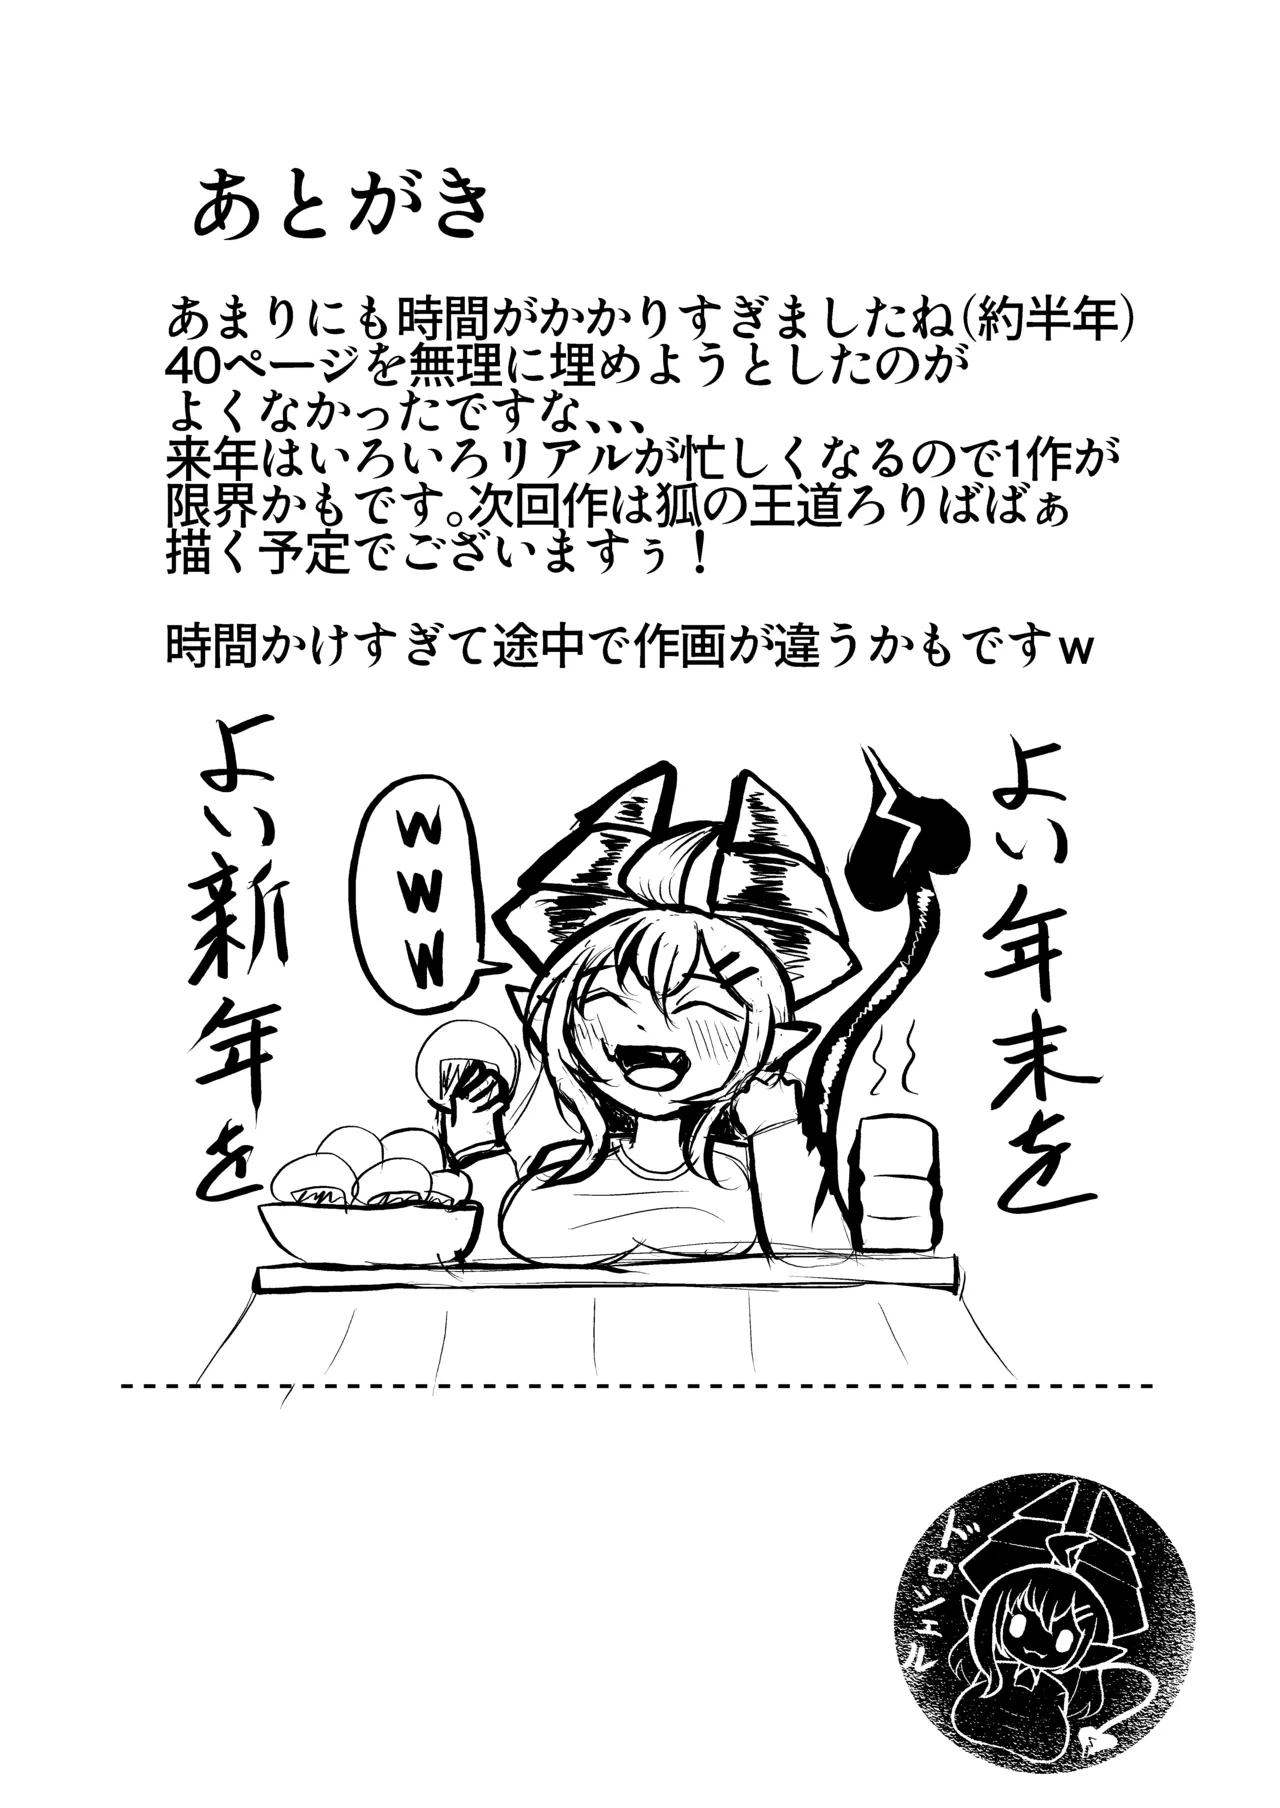 あとがき
あまりにも時間がかかりすぎましたね(約半年)
40ページを無理に埋めようとしたのが
よくなかったですな、、、
来年はいろいろリアルが忙しくなるので1作が
限界かもです。次回作は狐の王道ろりばばぁ
描く予定でございますぅ！
時間かけすぎて途中で作画が違うかもですｗ
よい年末を
www
よい新年を
ドロシェル